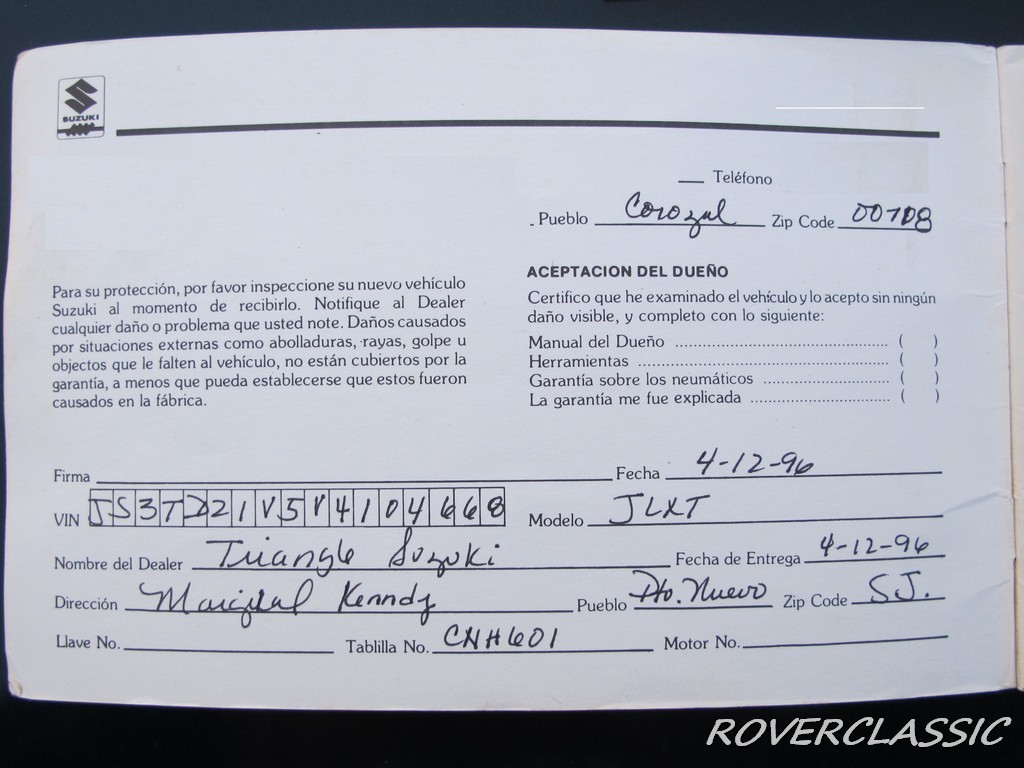 SUZUKI
Teléfono
Pueblo Corozal Zip Code 00708
Para su protección, por favor inspeccione su nuevo vehículo
Suzuki al momento de recibirlo. Notifique al Dealer
cualquier daño o problema que usted note. Daños causados
por situaciones externas como abolladuras, rayas, golpe u
objectos que le falten al vehículo, no están cubiertos por la
garantía, a menos que pueda establecerse que estos fueron
causados en la fábrica.
ACEPTACION DEL DUEÑO
Certifico que he examinado el vehículo y lo acepto sin ningún
daño visible, y completo con lo siguiente:
Manual del Dueño ( )
Herramientas ( )
Garantía sobre los neumáticos ( )
La garantía me fue explicada ( )
Firma Fecha 4-12-96
VIN JS3TD21V5V4104668 Modelo JLXT
Nombre del Dealer Triangle Suzuki Fecha de Entrega 4-12-96
Dirección Marginal Kenndy Pueblo Pto. Nuevo Zip Code SJ.
Llave No. Tablilla No. CNH601 Motor No.
ROVERCLASSIC